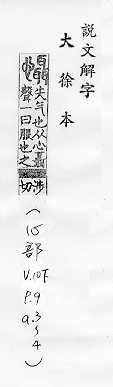 説文解字
大徐本
失气也从心聶
聲一曰服也之
涉切
(心部
V.10下
P.9
a.3~4)